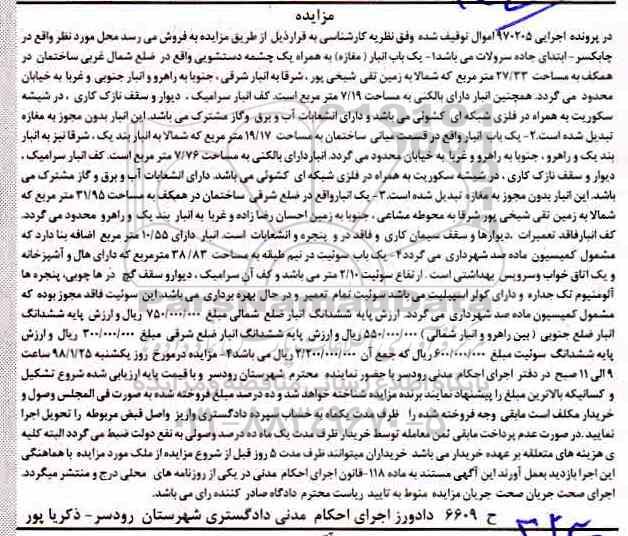 مزایده
در پرونده اجرایی ۹۷۰۲۰۵ اموال توقیف شده وفق نظریه کارشناسی به قرارذیل از طریق مزایده به فروش می رسد محل مورد نظر واقع در
چابکسر- ابتدای جاده سرولات می باشد۱- یک باب انبار ( مغازه) به همراه یک چشمه دستشویی واقع در ضلع شمال غربی ساختمان در
همکف به مساحت ۲۷/۳۳ متر مربع که شمالا به زمین تقی شیخی پور ،شرقا به انبار شرقی ، جنوبا به راهرو و انبار جنوبی و غربا به خیابان
محدود می گردد. همچنین انبار دارای بالکنی به مساحت ۷/۱۹ متر مربع است. کف انبار سرامیک ، دیوار و سقف نازک کاری ، در شیشه
سکوریت به همراه در فلزی شبکه ای کشوئی می باشد و دارای انشعابات آب و برق وگاز مشترک می باشد. این انبار بدون مجوز به مغازه
تبدیل شده است.۲- یک باب انبار واقع در قسمت میانی ساختمان به مساحت ۱۹/۱۷ متر مربع که شمالا به انبار بند یک ، شرقا نیز به انبار
بند یک و راهرو ، جنوبا به راهرو و غربا به خیابان محدود می گردد. انباردارای بالکنی به مساحت ۷/۷۶ متر مربع است. کف انبار سرامیک ،
دیوار و سقف نازک کاری ، در شیشه سکوریت به همراه در فلزی شبکه ای کشوئی می باشد. دارای انشعابات آب و برق و گاز مشترک می
باشد. این انبار بدون مجوز به مغازه تبدیل شده است.۳- یک انبارواقع در ضلع شرقی ساختمان در همکف به مساحت ۳۱/۹۵ متر مربع که
شمالا به زمین تقی شیخی پور شرقا به محوطه مشاعی ، جنوبا به زمین احسان رضا زاده و غربا به انبار بند یک و راهرو محدود می گردد.
کف انبارفاقد تعمیرات .دیوارها و سقف سیمان کاری و فاقد در و پنجره و انشعابات است. انبار دارای ۱۰/۵۵ متر مربع اضافه بنا دارد که
مشمول کمیسیون ماده صد شهرداری می گردد۴- یک باب سوئیت در نیم طبقه به مساحت ۳۸/۸۳ مترمربع که دارای هال و آشپزخانه
و یک اتاق خواب وسرویس بهداشتی است . ارتفاع سوئیت ۲/۱۰ متر می باشد و کف آن سرامیک ، دیوارو سقف گچ در ها چوبی، پنجره ها
آلومنیوم تک جداره و دارای کولر اسپیلیت می باشد.سوئیت تمام تعمیر و در حال بهره برداری می باشد.این سوئیت فاقد مجوز بوده که
مشمول کمیسیون ماده صد شهرداری می گردد. ارزش پایه ششدانگ انبار ضلع شمالی مبلغ ۷۵۰/۰۰۰/۰۰۰ ریال و ارزش پایه ششدانگ
انبار ضلع جنوبی ( بین راهرو و انبار شمالی ) ۵۵۰/۰۰۰/۰۰۰ ریال و ارزش پایه ششدانگ انبار ضلع شرقی مبلغ ۳۰۰/۰۰۰/۰۰۰ ریال و ارزش
پایه ششدانگ سوئیت مبلغ ۶۰۰/۰۰۰/۰۰۰ ریال که جمع آن ۲/۲۰۰/۰۰۰/۰۰۰ ریال می باشد۴- مزایده درمورخ روز یکشنبه ۹۸/۱/۲۵ ساعت
۹ الی ۱۱ صبح در دفتر اجرای احکام مدنی رودسر با حضور نماینده محترم شهرستان رودسر و با قیمت پایه ارزیابی شده شروع تشکیل
و کسانیکه بالاترین مبلغ را پیشنهاد نمایند برنده مزایده شناخته خواهد شد و ده درصد مبلغ فروخته شده به صورت فی المجلس وصول و
خریدار مکلف است مابقی وجه فروخته شده را ظرف مدت یکماه به حساب سپرده دادگستری واریز واصل قبض مربوطه را تحویل اجرا
نمایید .در صورت عدم پرداخت مابقی ثمن معامله توسط خریدار ظرف مدت یک ماه ده درصد وصولی به نفع دولت ضبط می گردد البته کلیه
ی هزینه های متعلقه بر عهده خریدار می باشد خریداران میتوانند ظرف مدت ۵ روز قبل از شروع مزایده از ملک مورد مزایده با هماهنگی
این اجرا بازدید بعمل آورند این آگهی مستند به ماده ۱۱۸-قانون اجرای احکام مدنی در یکی از روزنامه های محلی درج و منتشر میگردد.
اجرای صحت جریان صحت جریان مزایده منوط به تایید ریاست محترم دادگاه صادر کننده رای می باشد.
ح ۶۶۰۹ دادورز اجرای احکام مدنی دادگستری شهرستان رودسر- ذکریا پور